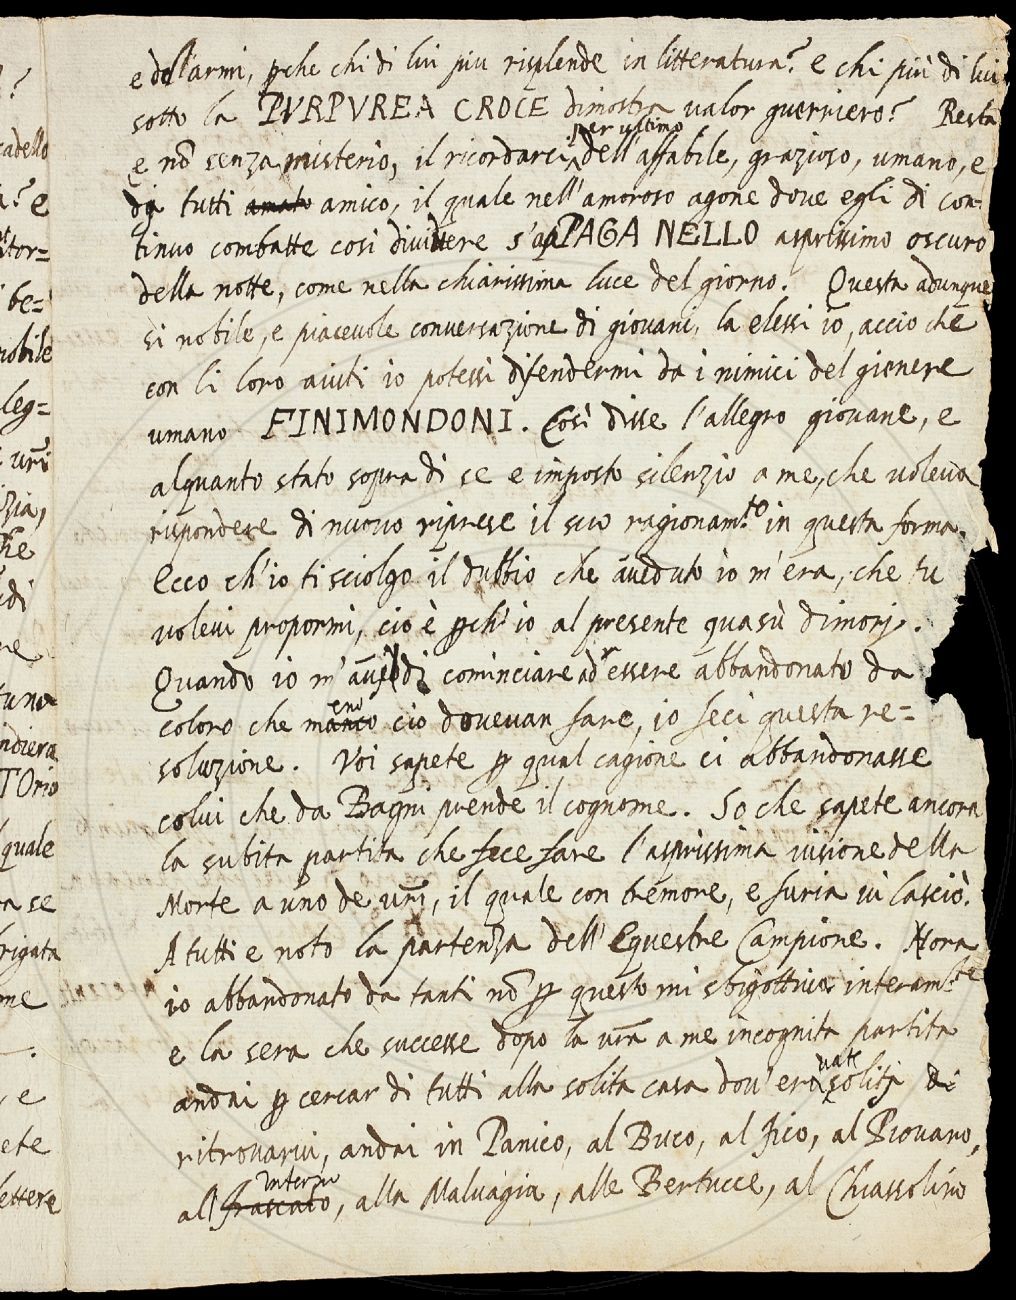 e dell'armi, pche chi di lui piu risplende in litteratura? e chi più di lui
sotto la PVRPVREA CROCE dimostra valor guerriero? Resta
e nõ senza misterio, il ricordarci per ultimo dell'affabile, grazioso, umano, e
di tutti amato amico, il quale nell'amoroso agone dove egli di con-
tinuo combatte cosi s'apPAGA NELLO asprissimo oscuro
della notte, come nella chiarissima luce del giorno. Questa adunque
si nobile, e piacevole conversazione di giovani, la elessi io, accio che
con li loro aiuti io potessi difendermi da i nimici del gienere
umano FINIMONDONI. Così disse l'allegro giovane, e
alquanto stato sopra di se e imposto silenzio a me, che voleva
rispondere di nuovo riprese il suo ragionam.to in questa forma.
Ecco ch'io ti sciolgo il dubbio che aveduto io m'era, che tu
volevi propormi, cio è pch'io al presente quasù dimorj.
Quando io m'avvidi cominciare ad essere abbandonato da
coloro che manco meno cio dovevan fare, io feci questa re=
soluzione. Voi sapete p qual cagione ci abbandonasse
colui che da Bagni prende il cognome. So che sapete ancora
la subita partita che fece fare l'asprissima visione della
Morte a uno de vrĩ, il quale con tremore, e furia vi lasciò.
A tutti e noto la partenza dell'Equestre Campione. Hora
io abbandonato da tanti nõ p questo mi sbigottivo interam.te
e la sera che successe dopo la vr̃a a me incognita partita
andai p cercar di tutti alla solita casa dov'eravate solitj di
ritrovarvi, andai in Panico, al Buco, al Fico, al Piovano,
al frascato Inferno, alla Malvagia, alle Bertucce, al Chiassolino
cadello
? e
tor=
be=
nobile
leg=
vrĩ
zia,
che
di
re
tuna
ndiera
TOrio
quale
ra se
brigata
me
e
ete
lettere